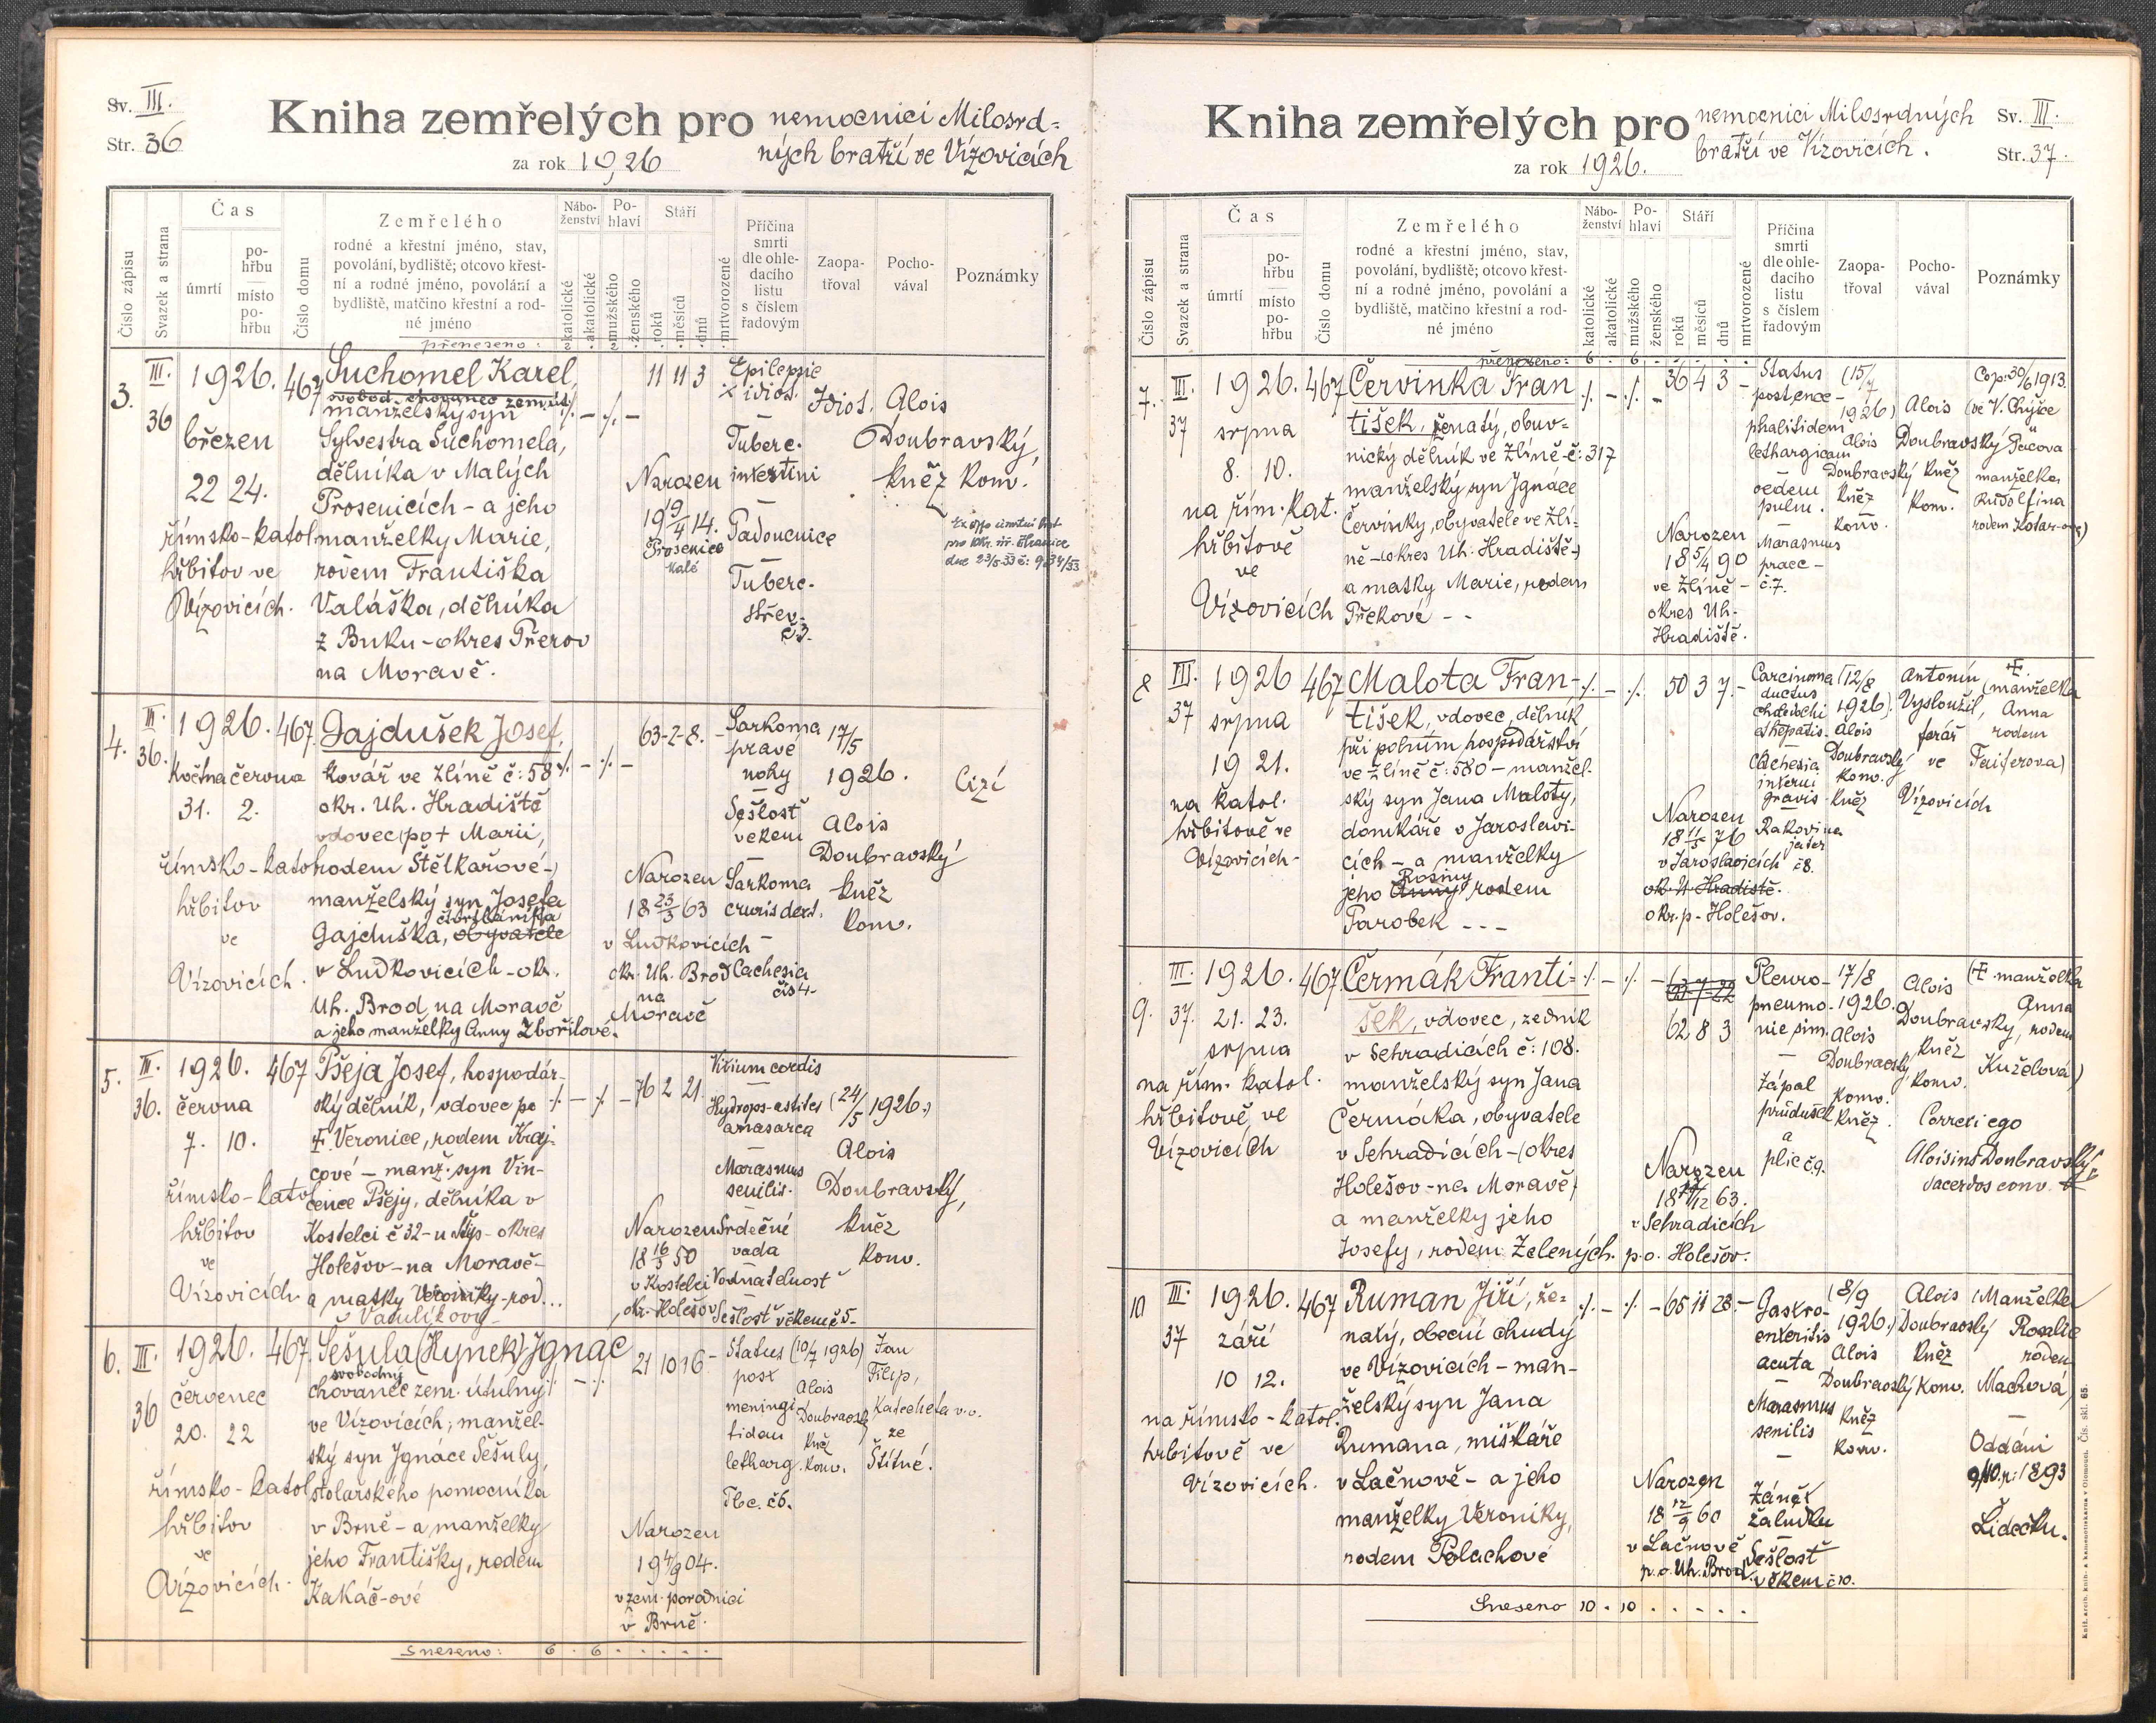 Sv. III.
Str. 36
Kniha zemřelých pro nemocnici Milosrd-
ných bratří ve Vizovicích
za rok 1926
Číslo zápisu
Svazek a strana
Čas
úmrtí
po-
hřbu
místo
po-
hřbu
Číslo domu
Zemřelého
rodné a křestní jméno, stav,
povolání, bydliště; otcovo křest-
ní a rodné jméno, povolání a
bydliště, matčino křestní a rod-
né jméno
Nábo-
ženství
katolické
akatolické
Po-
hlaví
mužského
ženského
Stáří
roků
měsíců
dnů
mrtvorozené
Příčina
smrti
dle ohle-
dacího
listu
s číslem
řadovým
Zaopa-
třoval
Pocho-
vával
Poznámky
přeneseno: 2 . 2 . . . . .
3.
III.
36
1926.
březen
22 24.
římsko-katol
hřbitov ve
Vizovicích.
467
Suchomel Karel,
svobod. chovanec zem. út.
manželský syn
Sylvestra Suchomela,
dělníka v Malých
Prosenicích - a jeho
manželky Marie,
rodem Františka
Valáška, dělníka
z Buku - okres Přerov
na Moravě.
11 11 3
Narozen
19 9/4 14.
Prosenice
Malé
Epilepsie
idios.
Tuberc.
intestini
Padoucnice
Tuberc.
střev.
č3.
Idiot.
Alois
Doubravský,
kněz konv.
4.
III.
36.
1926.
května června
31. 2.
římsko-katol
hřbitov
ve
Vizovicích.
467.
Gajdušek Josef,
kovář ve Zlíně č: 58
okr. Uh. Hradiště
vdovec (po + Marii,
rodem Štělkařové-)
manželský syn Josefa
čtvrtláníka
Gajduška, obyvatele
v Ludkovicích - okr.
Uh. Brod na Moravě
a jeho manželky Anny Zbořilové.
63-2-8.
Narozen
18 23/3 63
v Ludkovicích
okr. Uh. Brod
na
Moravě
Sarkoma
pravé
nohy
Sešlost
věkem
Sarkoma
cruris dext.
Cachexia
čís 4.
17/5
1926.
Alois
Doubravský
kněz
konv.
Cizí
5.
III.
36.
1926.
června
7. 10.
římsko-katol
hřbitov
ve
Vizovicích
467
Pšeja Josef, hospodář-
ský dělník, vdovec po
+ Veronice, rodem Kraj-
cové - manž. syn Vin-
cence Pšejy, dělníka v
Kostelci č 32 - u Štíp - okres
Holešov - na Moravě -
a matky Veroniky - rod...
Vaculíkovy
76 2 21.
Narozen
18 16/3 50
v Kostelci
okr. Holešov
Vitium cordis
Hydrops-ascites
anasarca
Marasmus
senilis.
Srdeční
vada
Vodnatelnost
Sešlost věkem č5.
(24/5 1926.)
Alois
Doubravský,
kněz
konv.
6.
III.
36
1926.
červenec
20. 22
římsko-katol
hřbitov
ve
Vizovicích.
467.
Šešula (Hynek) Ignác
svobodný
chovanec zem. útulny
ve Vizovicích; manžel-
ský syn Ignáce Šešuly,
stolařského pomocníka
v Brně - a manželky
jeho Františky, rodem
Kakáč-ové
21 10 16
Narozen
19 4/9 04.
v zem. porodnici
v Brně.
Status
post
meningi
tidem
letharg.
Tbc. č6.
(10/7 1926)
Alois
Doubravský
kněz
konv.
Jan
Filip,
Katecheta v. v.
ze
Štítné.
sneseno: 6 . 6 . . . . .
Kniha zemřelých pro nemocnici Milosrdných
bratří ve Vizovicích.
za rok 1926.
Sv. III.
Str. 37.
Číslo zápisu
Svazek a strana
Čas
úmrtí
po-
hřbu
místo
po-
hřbu
Číslo domu
Zemřelého
rodné a křestní jméno, stav,
povolání, bydliště; otcovo křest-
ní a rodné jméno, povolání a
bydliště, matčino křestní a rod-
né jméno
Nábo-
ženství
katolické
akatolické
Po-
hlaví
mužského
ženského
Stáří
roků
měsíců
dnů
mrtvorozené
Příčina
smrti
dle ohle-
dacího
listu
s číslem
řadovým
Zaopa-
třoval
Pocho-
vával
Poznámky
přeneseno: 6 . 6 . . . . .
7.
III.
37
1926.
srpna
8. 10.
na řím. kat.
hřbitově
ve
Vizovicích
467
Červinka Fran
tišek, ženatý, obuv-
nický dělník ve Zlíně - č: 317
manželský syn Ignáce
Červinky, obyvatele ve Zlí-
ně - (okres Uh. Hradiště-)
a matky Marie, rodem
Překové - -
36 4 3 -
Narozen
18 5/4 90
ve Zlíně -
okres Uh.
Hradiště.
Status
post ence-
phalitidem
lethargicam
oedem
pulm.
Marasmus
praec -
č.7.
(15/7
1926)
Alois
Doubravský
kněz
konv.
Alois
Doubravský
kněz
konv.
Cop: 30/6 1913.
(ve V. Chýšce
u Pacova
manželka
Rudolfina
rodem
8
III.
37
1926
srpna
19 21.
na katol.
hřbitově ve
Vizovicích -
467
Malota Fran-
tišek, vdovec, dělník
při polním hospodářství
ve Zlíně č: 580 - manžel-
ský syn Jana Maloty,
domkáře v Jaroslavi-
cích - a manželky
Rosiny
jeho Anny rodem
Parobek - - -
50 3 7. -
Narozen
18 11/5 76
v Jaroslavicích
ok. U. Hradiště.
okr. p. Holešov.
Carcinoma
ductus
choledochi
et hepatis.
Cachexia
interni
gravis
Rakovina
jater
č8.
(12/8
1926).
Alois
Doubravský
konv.
kněz
Antonín
Vysloužil,
farář
ve
Vizovicích
+
(manželka
Anna
rodem
Faiferova)
9.
III.
37.
1926.
21. 23.
srpna
na řím. katol.
hřbitově, ve
Vizovicích
467.
Čermák Franti-
šek, vdovec, zedník
v Sehradicích č: 108.
manželský syn Jana
Čermáka, obyvatele
v Sehradicích - (okres
Holešov - na Moravě)
a manželky jeho
Josefy, rodem Zelených.
63 7 22
62 8 3
Narozen
18 /12 63.
v Sehradicích
p. o. Holešov.
Pleuro-
pneumo-
nie sim.
Zápal
průdušek
a
plic č.9.
17/8
1926.
Alois
Doubravský
konv.
kněz
Alois
Doubravský,
kněz
konv.
(+ manželka
Anna
rodem
Kuželová)
Correxi ego
Aloisius Doubravský
sacerdos conv.
10
III.
37
1926.
září
10 12.
na římsko-katol.
hřbitově ve
Vizovicích.
467
Ruman Jiří, že-
natý, obecní chudý
ve Vizovicích - man-
želský syn Jana
Rumana, miškáře
v Lačnově - a jeho
manželky Veroniky,
rodem Polachové
65 11 28. -
Narozen
18 12/9 60
v Lačnově
p. o. Uh. Brod.
Gastro-
enteritis
acuta
Marasmus
senilis
Zánět
žaludku
Sešlost
věkem č 10.
(8/9
1926.)
Alois
Doubravský
kněz
konv.
Alois
Doubravský
kněz
konv.
(Manželka
Rosalie
rodem
Machová)
Oddáni
1893
Lidečku.
Sneseno 10 . 10 . . . . .
Knih. arcib. knih- a kamenotiskárna v Olomouci. Čís. skl. 65.